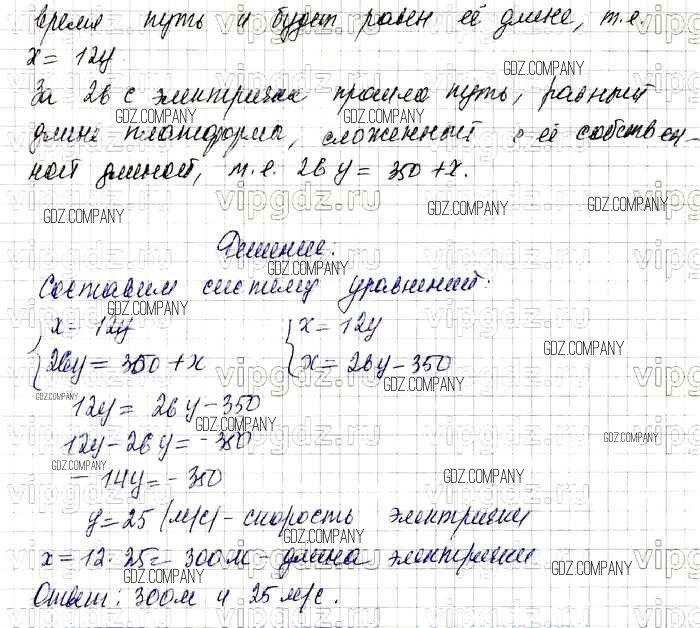 время путь и будет равен её длине, т.е.
x = 12y
За 26 с электричка прошла путь, равный
длине платформы, сложенный с её собствен-
ной длиной, т.е. 26y = 350 + x.
Решение.
Составим систему уравнений:
x = 12y x = 12y
26y = 350 + x x = 26y - 350
12y = 26y - 350
12y - 26y = - 350
- 14y = - 350
y = 25 (м/с) - скорость электрички
x = 12 · 25 = 300м - длина электрички
Ответ: 300м и 25м/с.
GDZ.COMPANY
vipgdz.ru